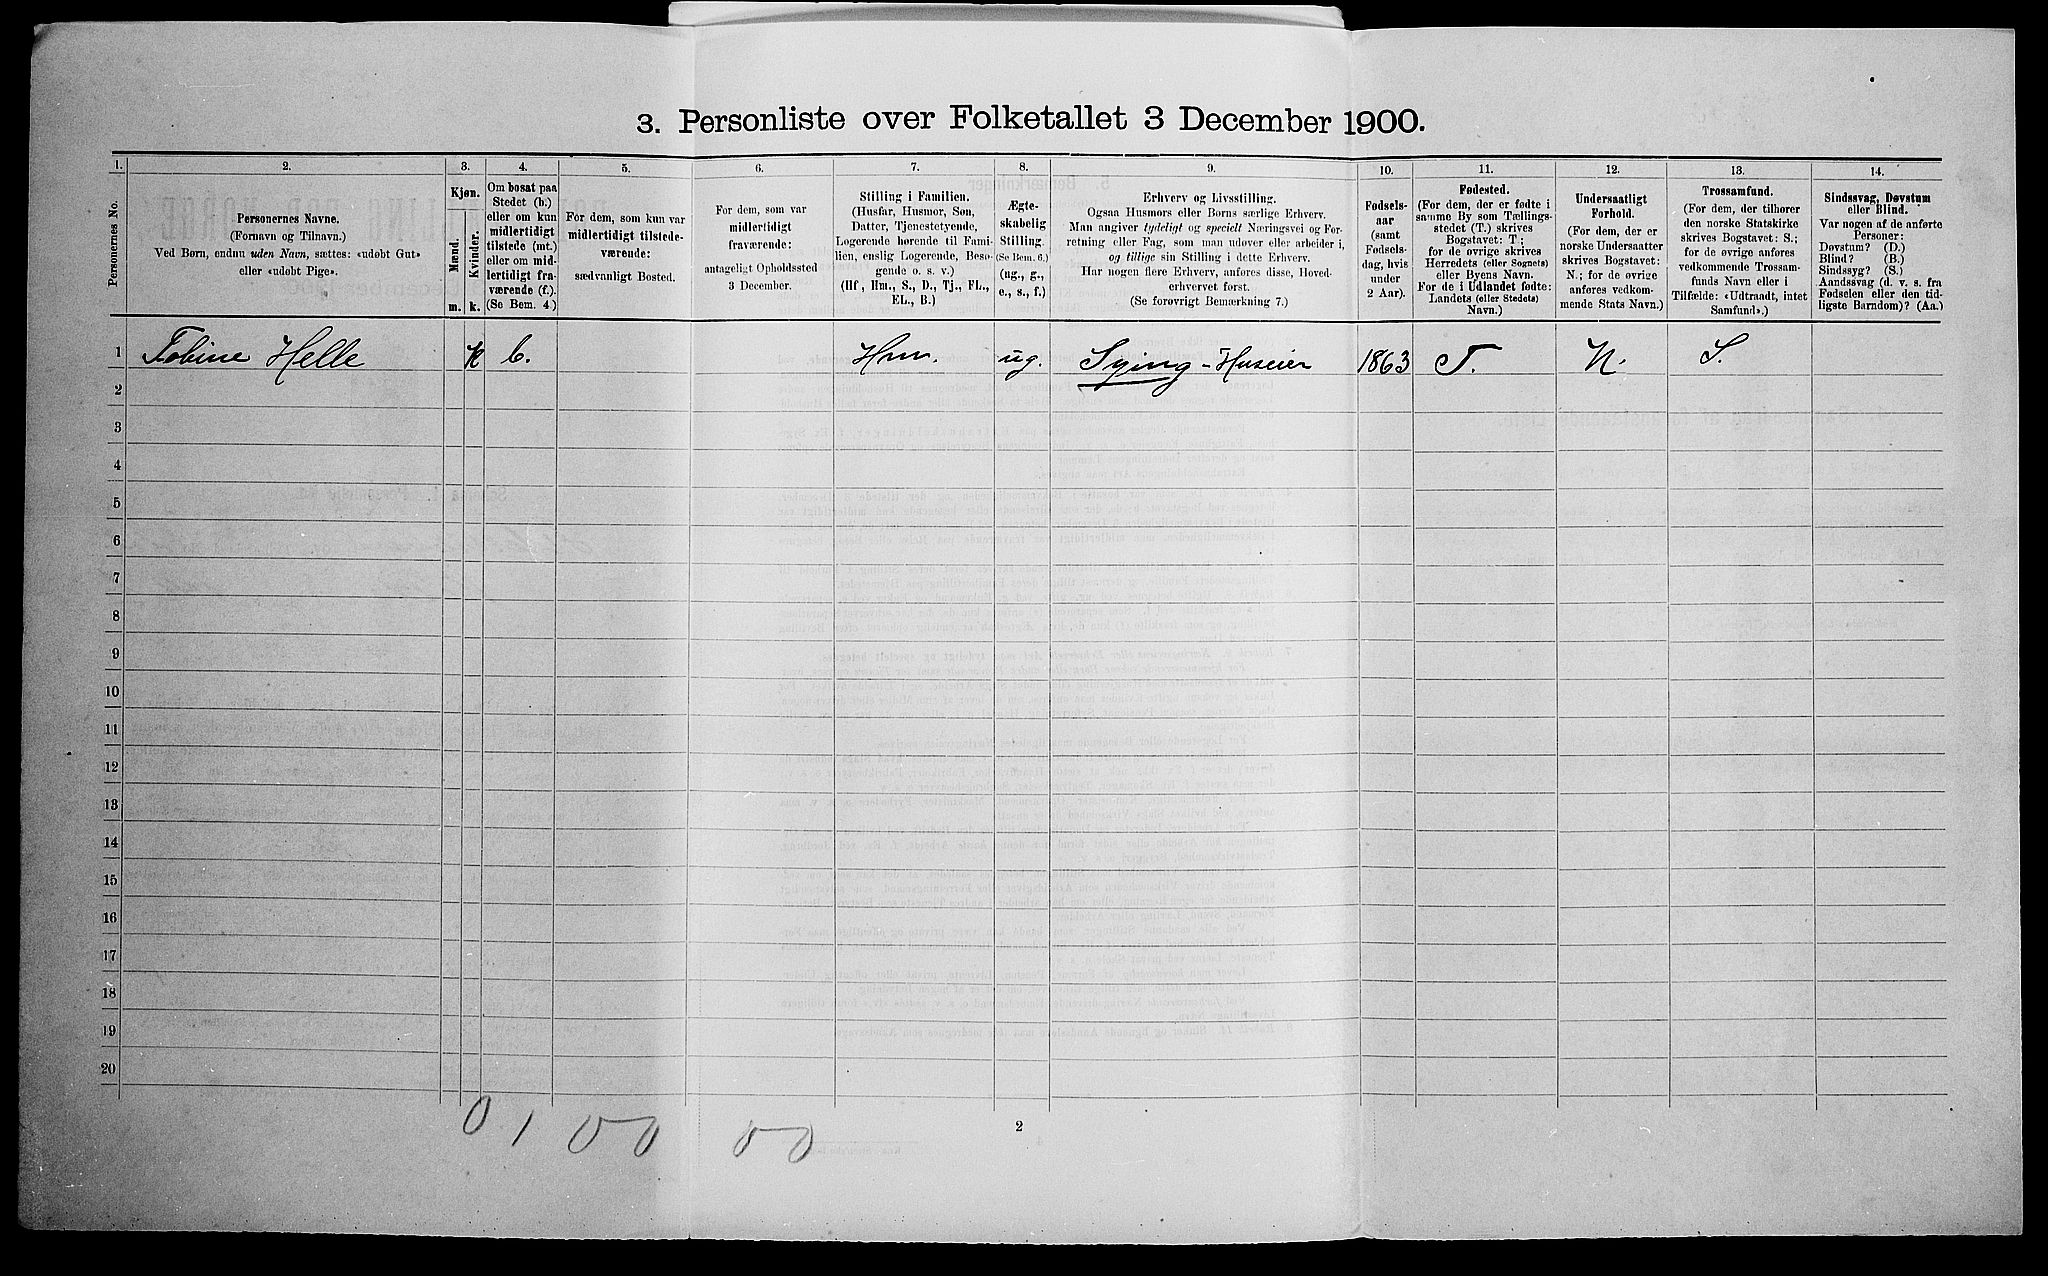 3. Personliste over Folketallet 3 December 1900.
1. 2. 3. 4. 5. 6. 7. 8. 9. 10. 11. 12. 13. 14.
Personernes No.
Personernes Navne.
(Fornavn og Tilnavn.)
Ved Børn, endnu uden Navn, sættes: «udøbt Gut»
eller «udøbt Pige».
Kjøn.
Mænd.
Kvinder.
m. k.
Om bosat paa
Stedet (b.)
eller om kun
midlertidigt
tilstede (mt.)
eller om mid-
lertidigt fra-
værende (f.).
(Se Bem. 4.)
For dem, som kun var
midlertidigt tilstede-
værende:
sædvanligt Bosted.
For dem, som var
midlertidigt
fraværende:
antageligt Opholdssted
3 December.
Stilling i Familien.
(Husfar, Husmor, Søn,
Datter, Tjenestetyende,
Logerende hørende til Fami-
lien, enslig Logerende, Besø-
gende o. s. v.)
(Hf., Hm., S., D., Tj., FL.,
EL., B.)
Ægte-
skabelig
Stilling.
(Se Bem. 6.)
(ug., g.,
e., s., f.)
Erhverv og Livsstilling.
Ogsaa Husmors eller Børns særlige Erhverv.
Man angiver tydeligt og specielt Næringsvei og For-
retning eller Fag, som man udøver eller arbeider i,
og tillige sin Stilling i dette Erhverv.
Har nogen flere Erhverv, anføres disse, Hoved-
erhvervet først.
(Se forøvrigt Bemærkning 7.)
Fødsels-
aar
(samt
Fødsels-
dag, hvis
under
2 Aar).
Fødested.
(For dem, der er fødte i
samme By som Tællings-
stedet (T.) skrives
Bogstavet: T;
for de øvrige skrives
Herredets (eller Sognets)
eller Byens Navn.
For de i Udlandet fødte:
Landets (eller Stedets)
Navn.)
Undersaatligt
Forhold.
(For dem, der er
norske Undersaatter
skrives Bogstavet:
N.; for de øvrige
anføres vedkom-
mende Stats Navn.)
Trossamfund.
(For dem, der tilhører
den norske Statskirke
skrives Bogstavet: S.;
for de øvrige anføres
vedkommende Trossam-
funds Navn eller i
Tilfælde: «Udtraadt, intet
Samfund».)
Sindssvag, Døvstum
eller Blind.
Var nogen af de anførte
Personer:
Døvstum? (D.)
Blind? (B.)
Sindssyg? (S.)
Aandssvag (d. v. s. fra
Fødselen eller den tid-
ligste Barndom)? (Aa.)
1 Tobine Helle k b. Hm. ug. Sying - Huseier 1863 T. N. S.
2
3
4
5
6
7
8
9
10
11
12
13
14
15
16
17
18
19
20
0 1 0 0 0 0
2